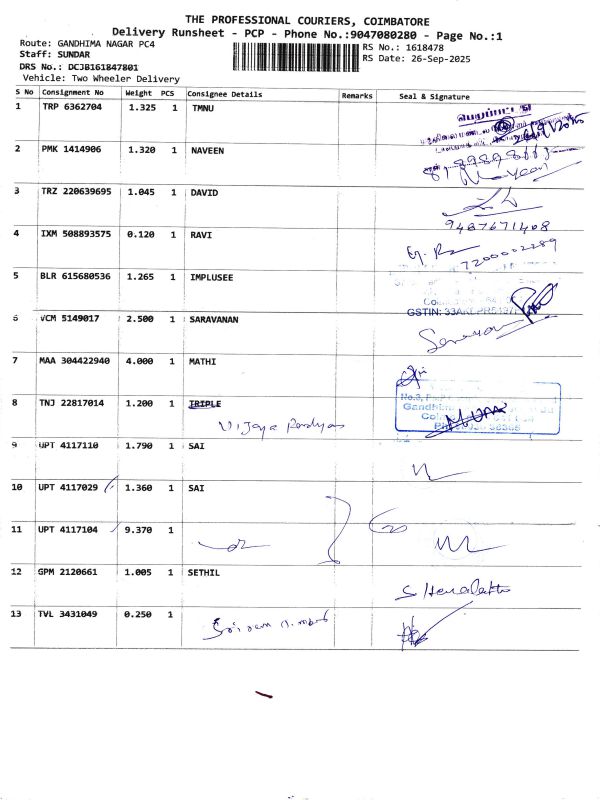 THE PROFESSIONAL COURIERS, COIMBATORE
Delivery Runsheet - PCP - Phone No.:9047080280 - Page No.:1
Route: GANDHIMA NAGAR PC4
RS No.: 1618478
Staff: SUNDAR
RS Date: 26-Sep-2025
DRS No.: DCJB161847801
Vehicle: Two Wheeler Delivery
S No Consignment No Weight PCS Consignee Details Remarks Seal & Signature
1 TRP 6362704 1.325 1 TMNU
2 PMK 1414906 1.320 1 NAVEEN
3 TRZ 220639695 1.045 1 DAVID
9487671408
4 IXM 508893575 0.120 1 RAVI
7200002289
5 BLR 615680536 1.265 1 IMPLUSEE
GSTIN:
6 VCM 5149017 2.500 1 SARAVANAN
7 MAA 304422940 4.000 1 MATHI
8 TNJ 22817014 1.200 1 TRIPLE
No.3,
Vijaya
9 UPT 4117110 1.790 1 SAI
10 UPT 4117029 1.360 1 SAI
11 UPT 4117104 9.370 1
12 GPM 2120661 1.005 1 SETHIL
13 TVL 3431049 0.250 1